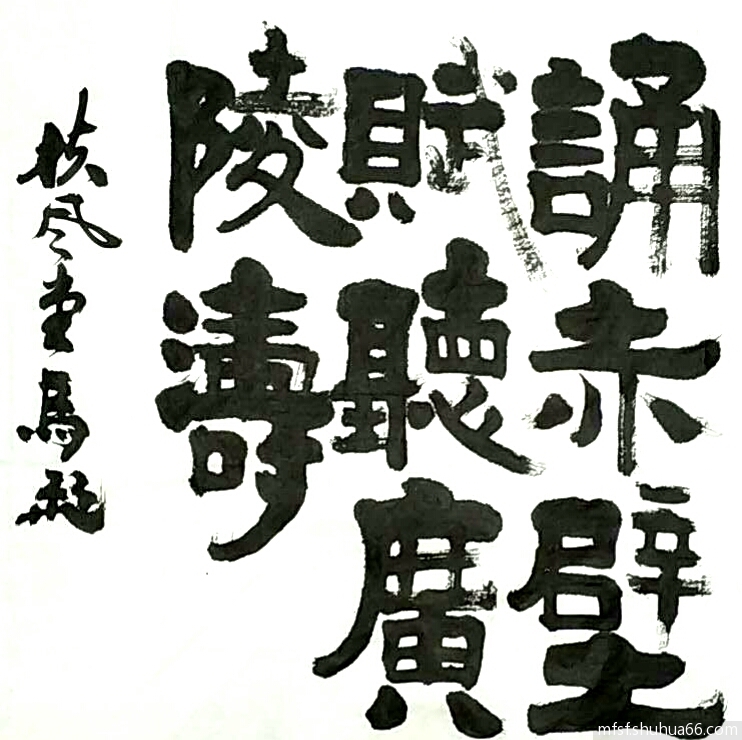 誦赤壁
賦聽廣
陵濤
扶风堂馬
mfsfshuhua66.com